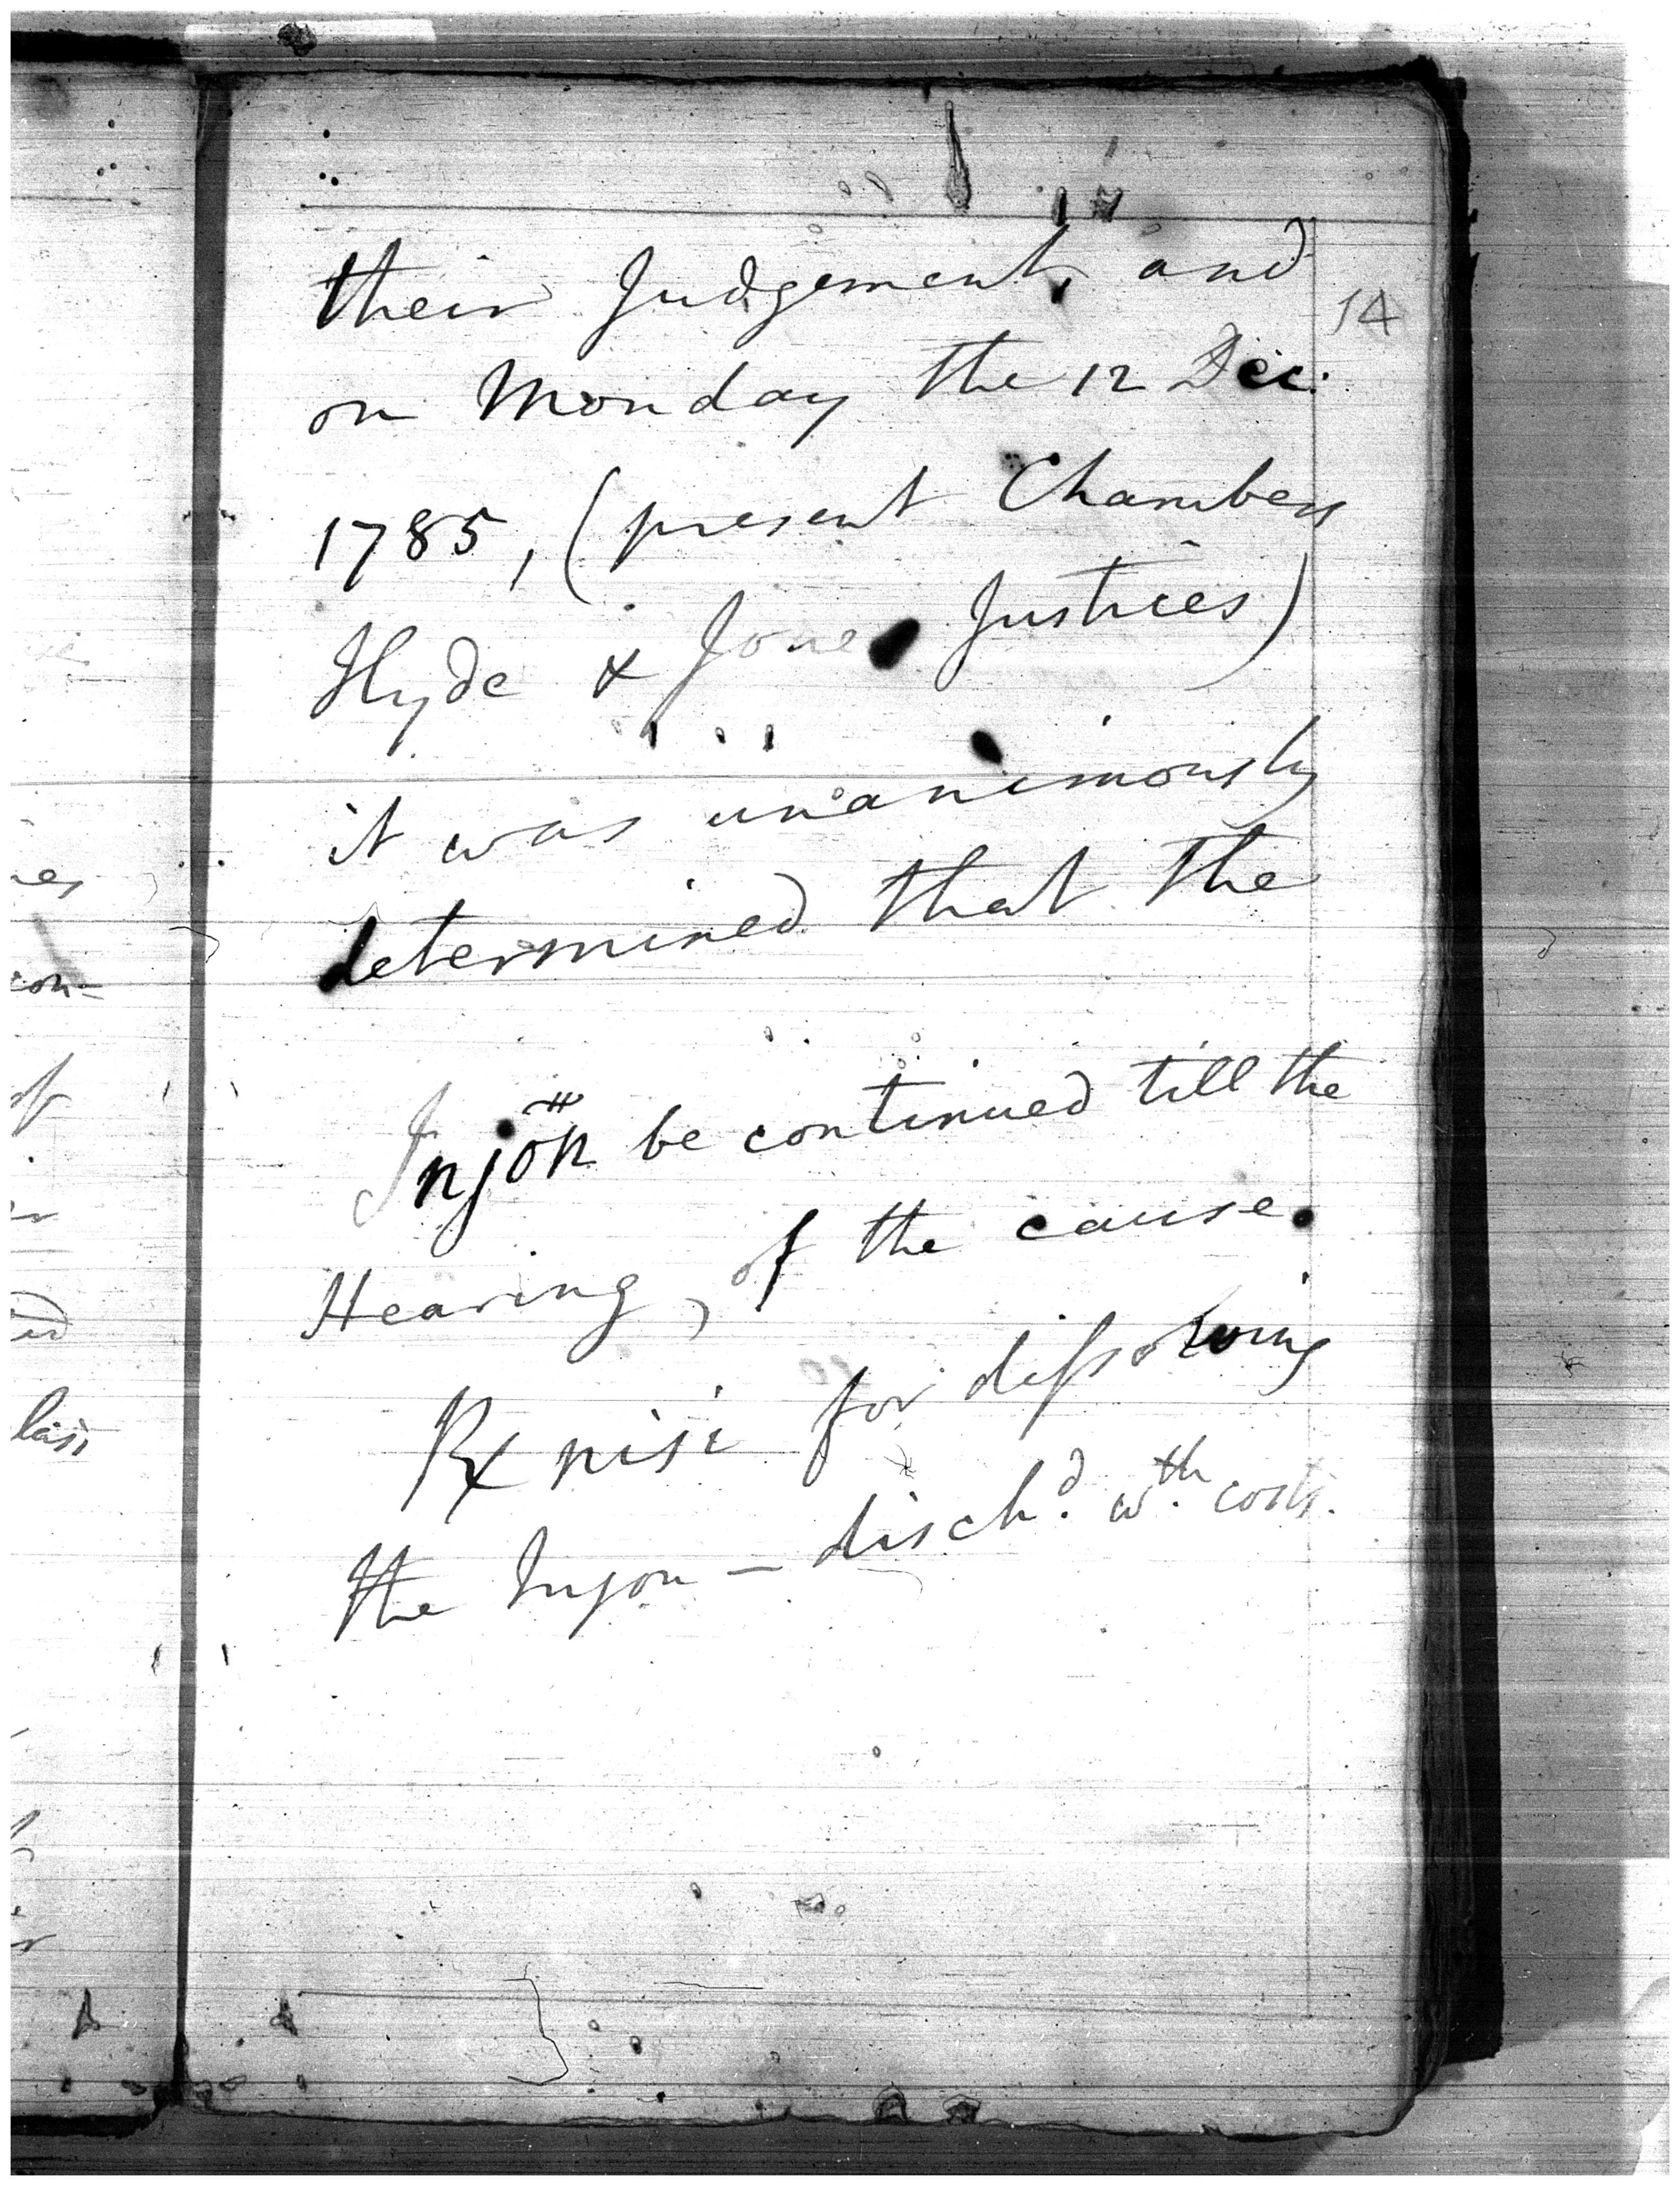 14
their Judgement, and
on Monday the 12 Dec.
1785, (present Chambers
Hyde & Jones Justices)
it was unanimously
determined that the
Injon be continued till the
Hearing, of the cause.
Rx nisi for dissolving
the Injon – disch.d w.th costs.
con-
of